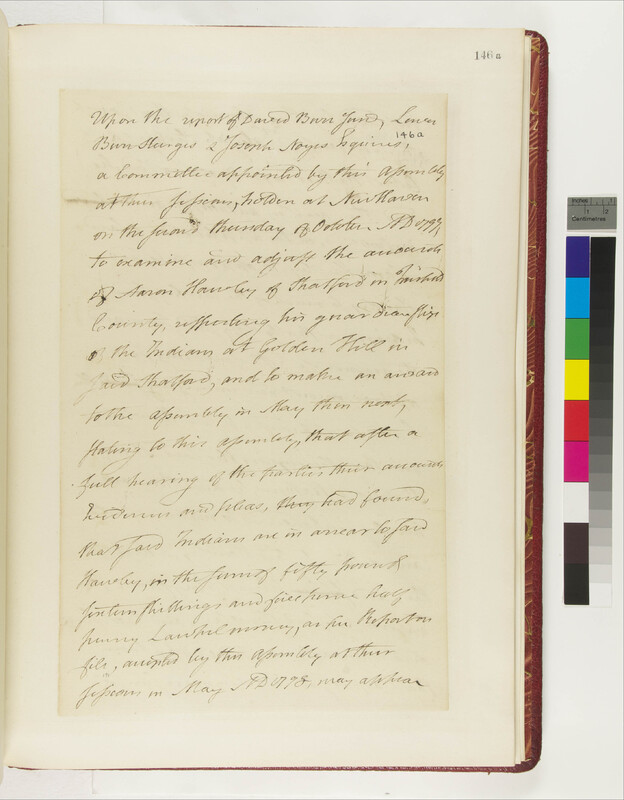 146a
Upon the report of David Burr Junr, Lewis
Burr Sturges & Joseph Noyes Esquires,
146a
a Committee appointed by this Assembly
at their Sessions, holden at New Haven
on the second thursday of October AD 1797,
to examine and adjust the accounts
of Aaron Hawley of Stratford in Fairfield
County, respecting his guardianship
of the Indians at Golden Hill in
said Stratford, and to make an award
to the Assembly in May then next,
stating to this Assembly, that after a
full hearing of the parties their accounts
Evidences and pleas, they had found,
that said Indians are in arrear to said
Hawley, in the sum of fifty pounds
sixteen shillings and five pence half
penny Lawful money, as per Report on
file, accepted by this Assembly at their
Sessions in May AD 1798, may appear
Inches
1
2
Centimetres